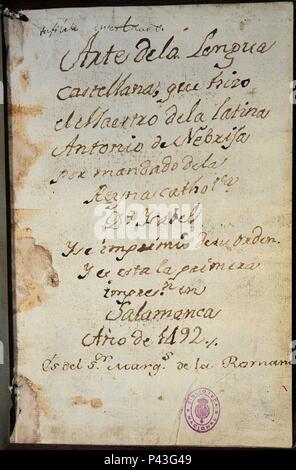 Arte dela Lengua
castellana, que hizo
el Maestro dela latina
Antonio de Nebrisa
por mandado dela
Reyna Cathol.ca
D.a Ysabel
Y se imprimio de su orden.
Y es esta la primera
impres.n en
Salamanca
Año de 1492.
Es del s.r Marq.s de la Romana
alamy
Image ID: P43G49
www.alamy.com